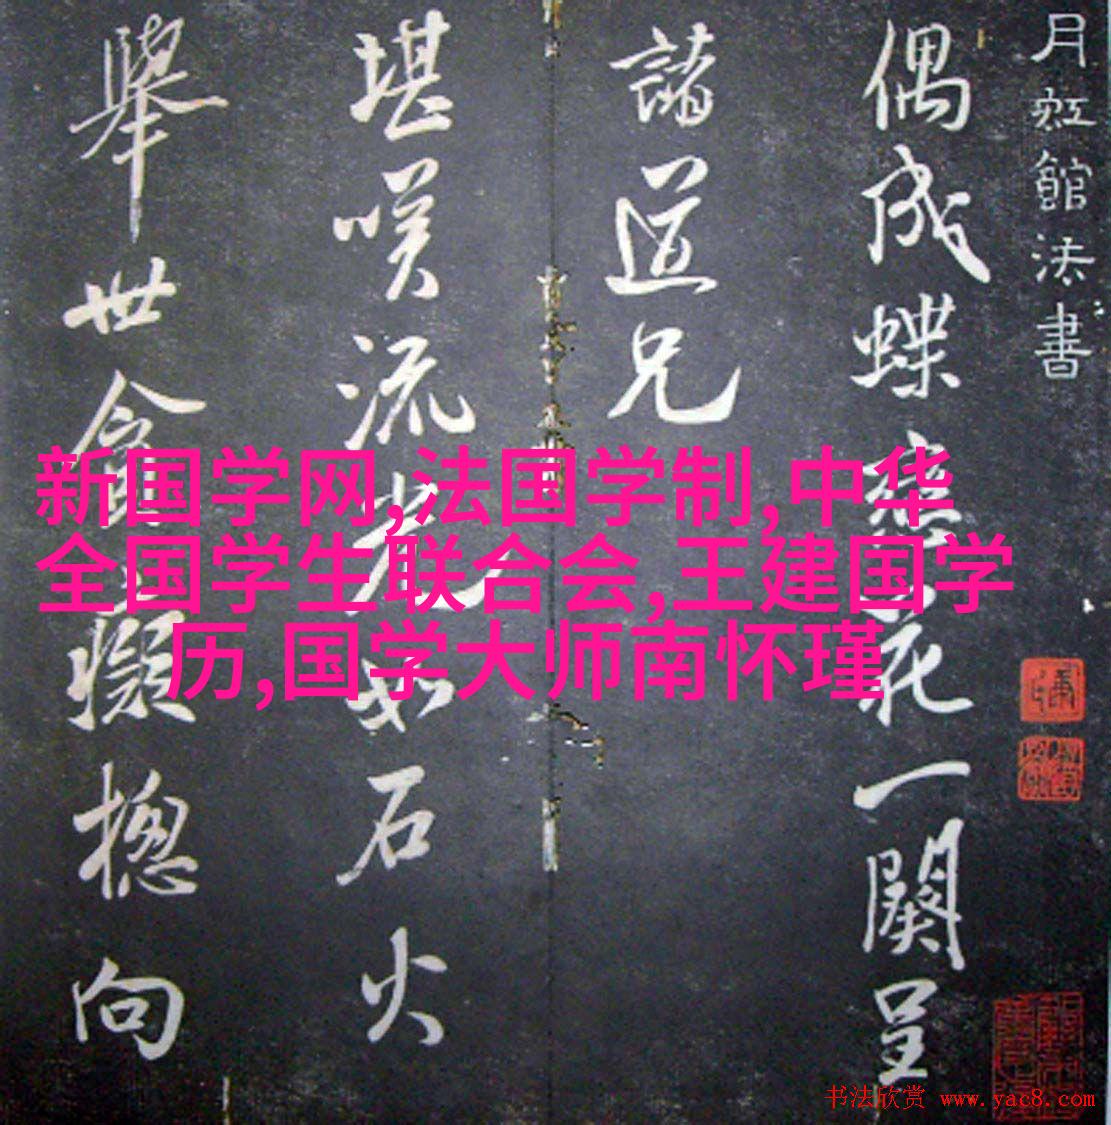 月虹館法書
偶成蝶戀花一闋呈
諸道兄
堪嘆流光如石火
舉世貪癡摠向
新国学网,法国学制,中华
全国学生联合会,王建国学
历,国学大师南怀瑾
书法欣赏 www.yac8.com